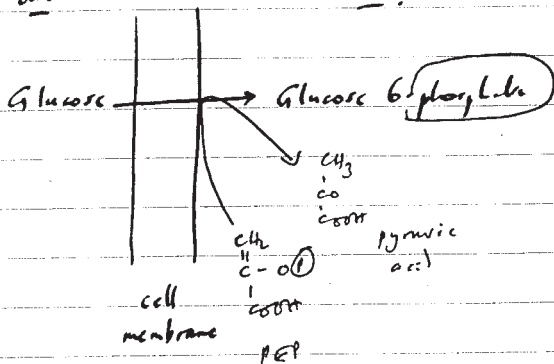 Glucose → Glucose 6-phosphate
CH3
CO
COOH
pyruvic
acid
CH2
||
C - O(P)
COOH
cell
membrane
PEP